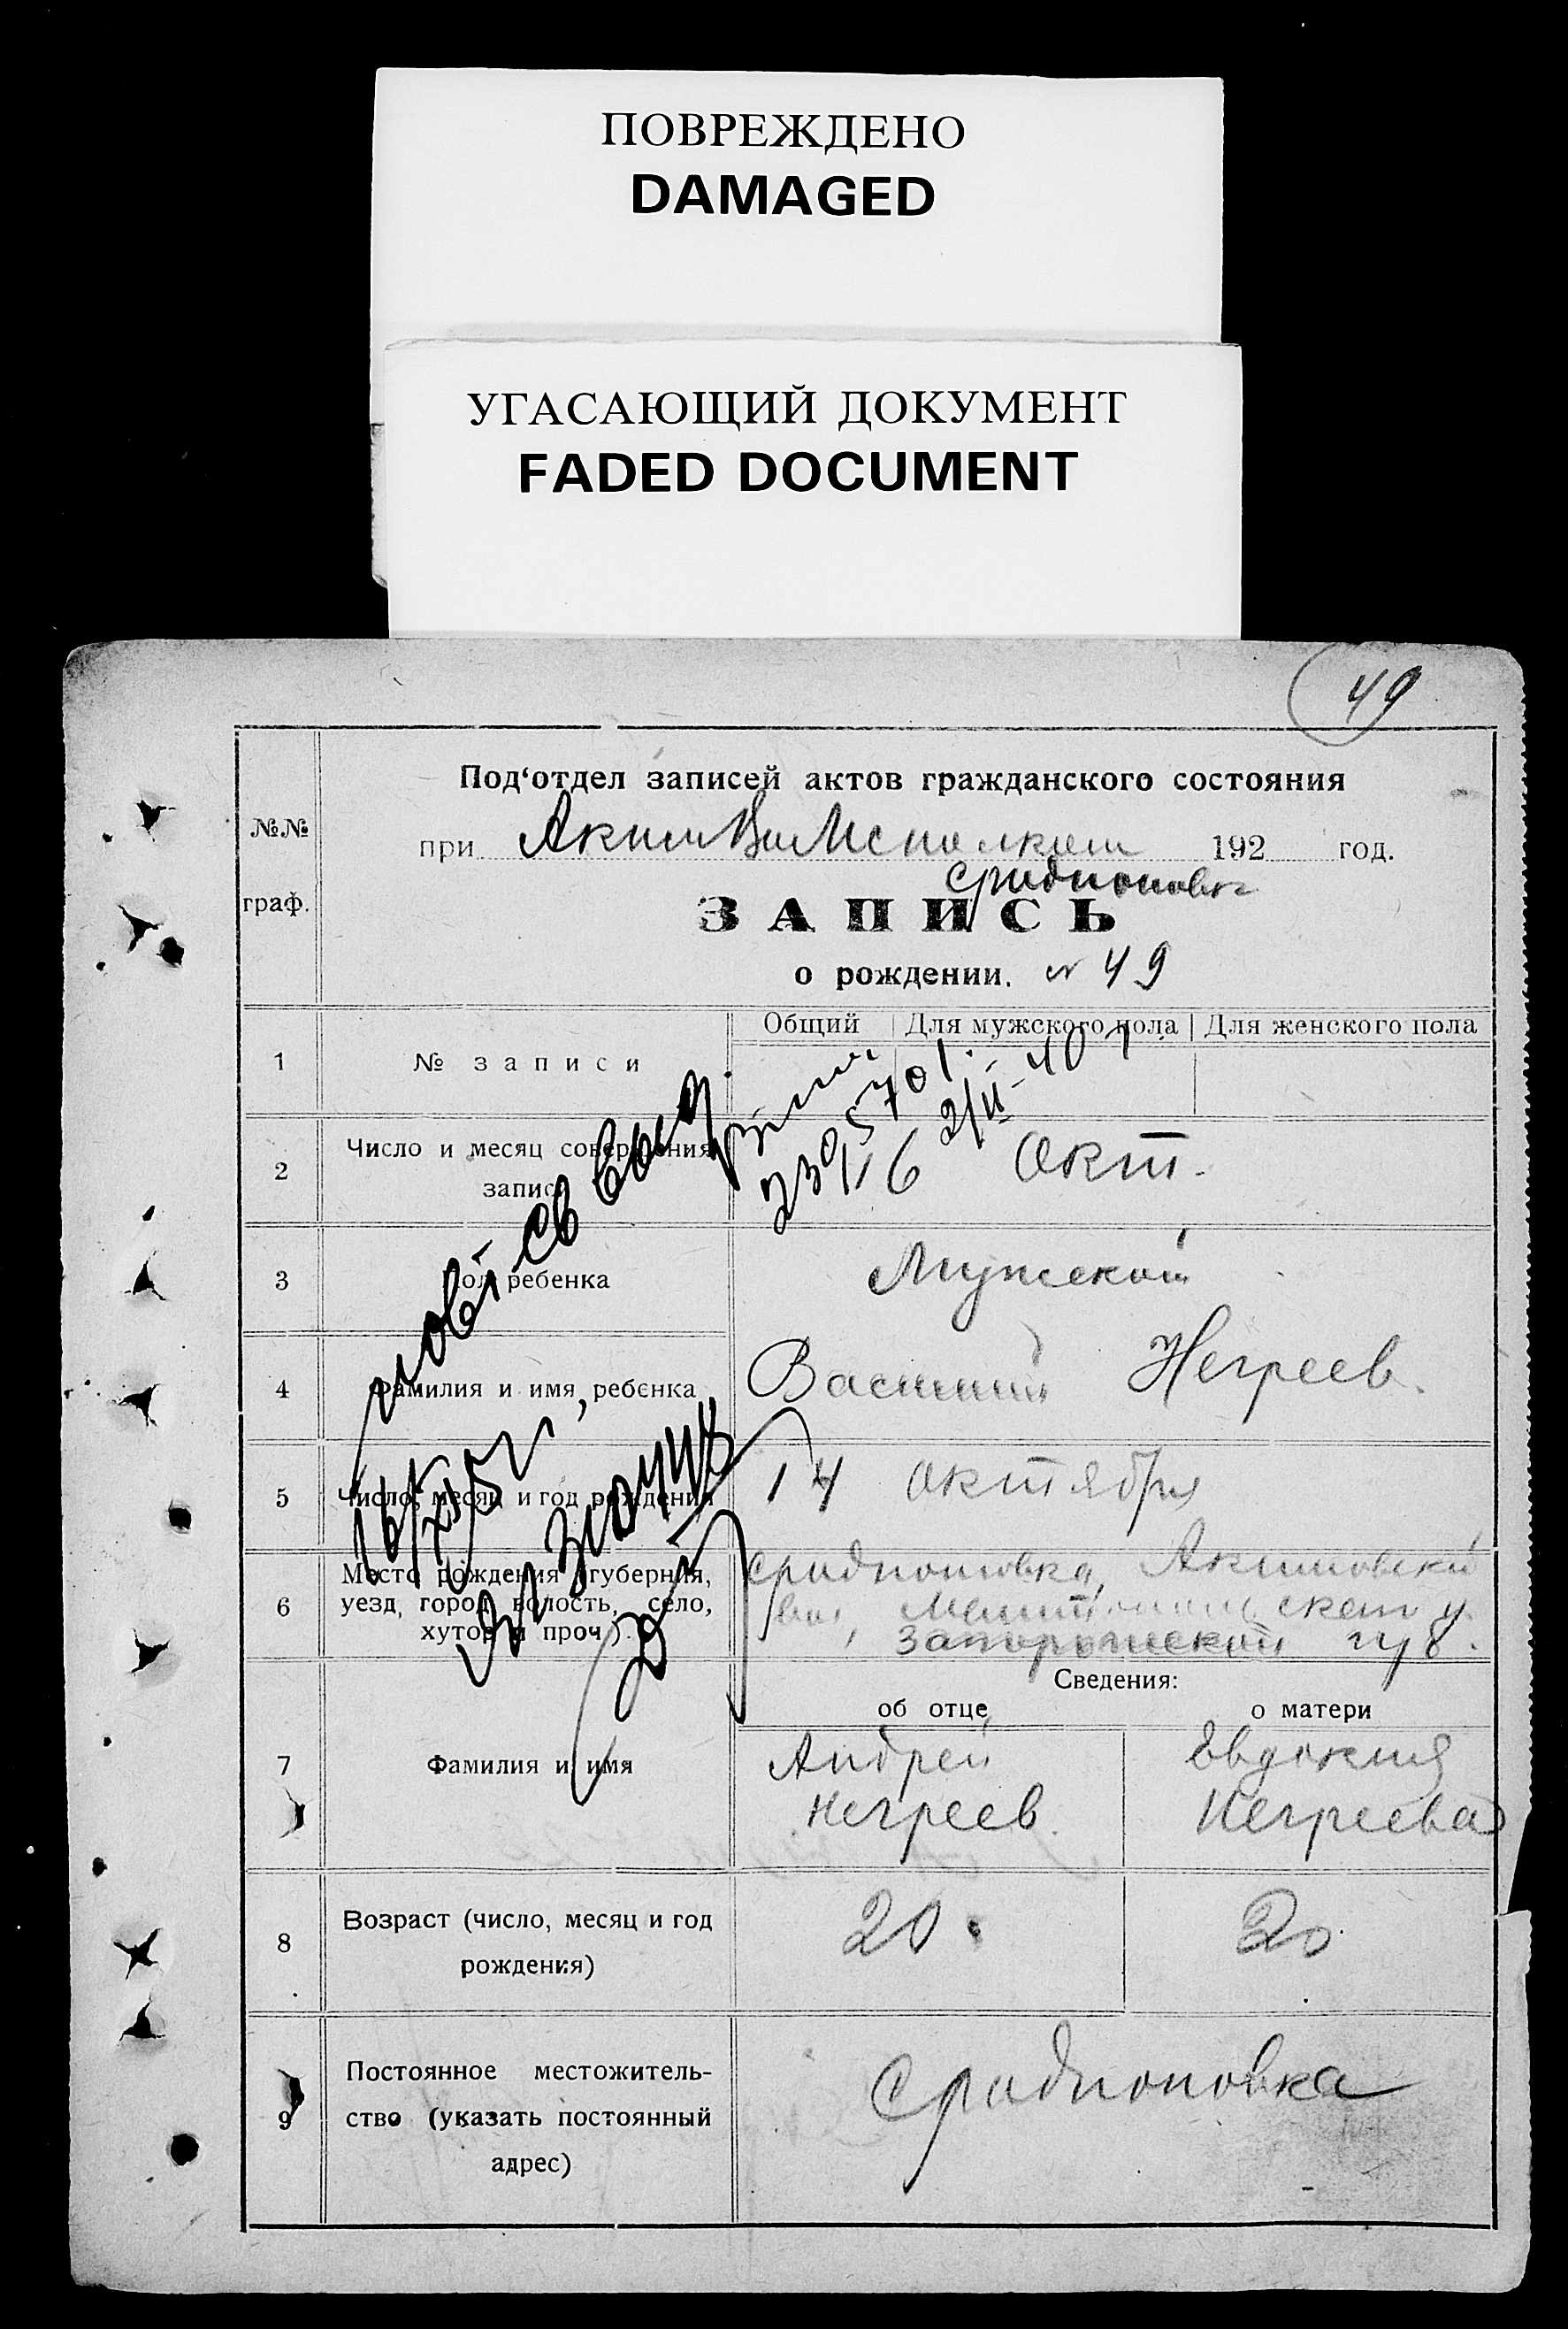 ПОВРЕЖДЕНО
DAMAGED
УГАСАЮЩИЙ ДОКУМЕНТ
FADED DOCUMENT
49
№№
граф.
Под‘отдел записей актов гражданского состояния
при 192 год.
ЗАПИСЬ
о рождении. № 49
Общий Для мужского пола Для женского пола
1 № записи
2 Число и месяц совершения
записи
16 Окт.
3 Пол ребенка Мужской
4 Фамилия и имя ребенка Василий Негреев.
5 Число, месяц и год рождения 14 октября
6 Место рождения (губерния,
уезд, город, волость, село,
хутор и проч.).
Акимовской
у.
Запорожской губ.
Сведения:
об отце о матери
7 Фамилия и имя Андрей Евдокия
Негреев Негреева
8 Возраст (число, месяц и год
рождения)
20. 20.
9 Постоянное местожитель-
ство (указать постоянный
адрес)